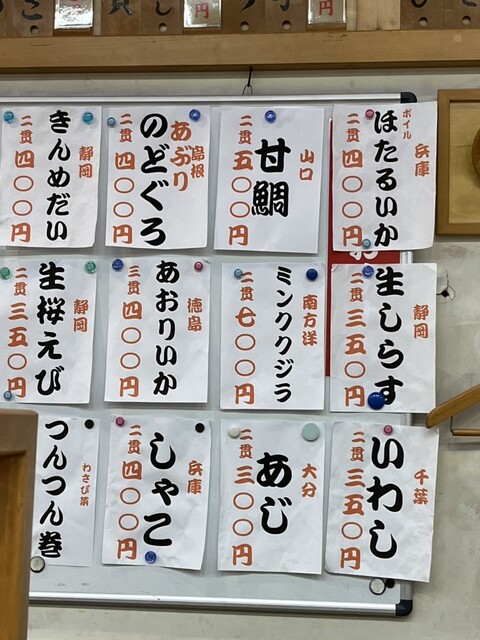 兵庫
ボイル
ほたるいか
二貫 四〇〇円
山口
甘鯛
二貫 五〇〇円
島根
あぶり
のどぐろ
二貫 四〇〇円
静岡
きんめだい
二貫 四〇〇円
静岡
生しらす
二貫 三五〇円
南方洋
ミンククジラ
二貫 七〇〇円
徳島
あおりいか
三貫 四〇〇円
静岡
生桜えび
二貫 三五〇円
千葉
いわし
二貫 三五〇円
大分
あじ
二貫 三〇〇円
兵庫
しゃこ
二貫 四〇〇円
わさび菜
つんつん巻